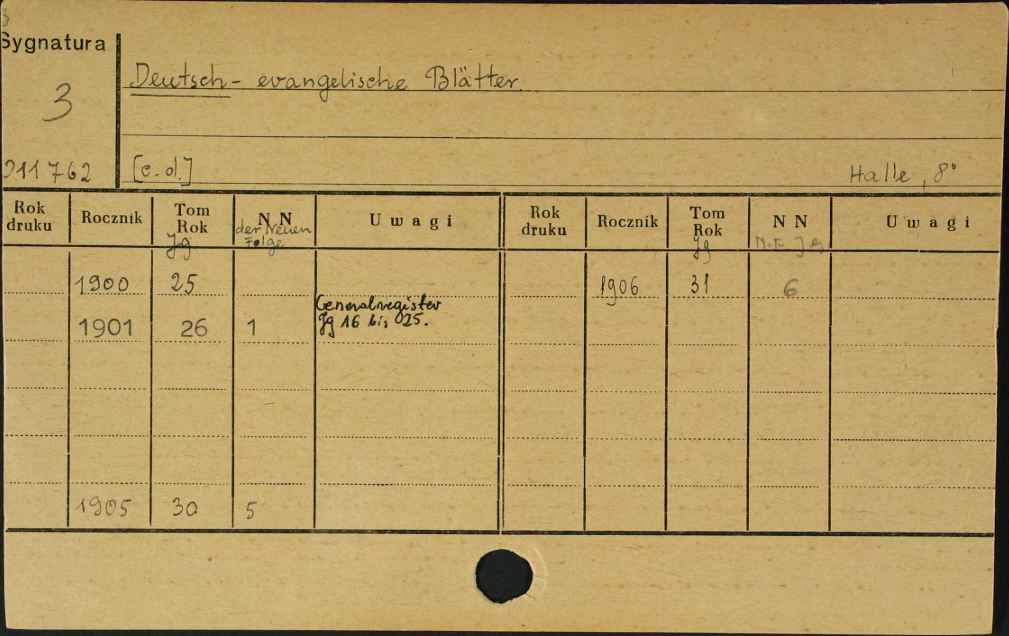 Sygnatura
Deutsch - evangelische Blätter.
3
911762
[c. d.]
Halle, 8°
Rok druku Rocznik Tom Rok Jg NN der Neuen Folge Uwagi Rok druku Rocznik Tom Rok Jg NN Uwagi
1900 25 1906 31 6
Generalregister
1901 26 1 Jg 16 bis 25.
1905 30 5